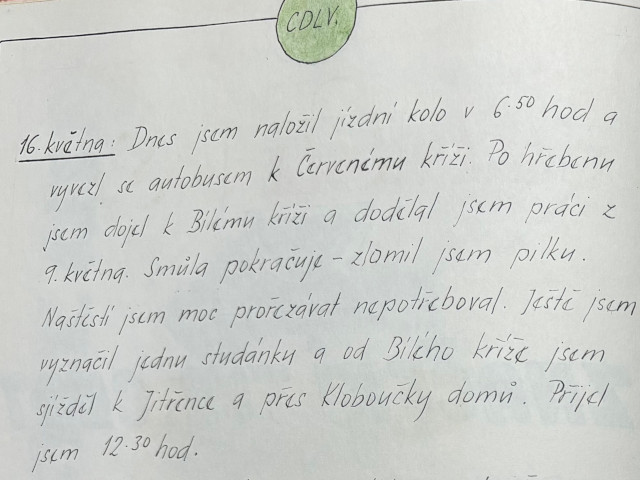 CDLV.
16. května: Dnes jsem naložil jízdní kolo v 6.50 hod a
vyvezl se autobusem k Červenému kříži. Po hřebenu
jsem dojel k Bílému kříži a dodělal jsem práci z
9. května. Smůla pokračuje - zlomil jsem pilku.
Naštěstí jsem moc prořezávat nepotřeboval. Ještě jsem
vyznačil jednu studánku a od Bílého kříže jsem
sjížděl k Jitřence a přes Kloboučky domů. Přijel
jsem 12.30 hod.